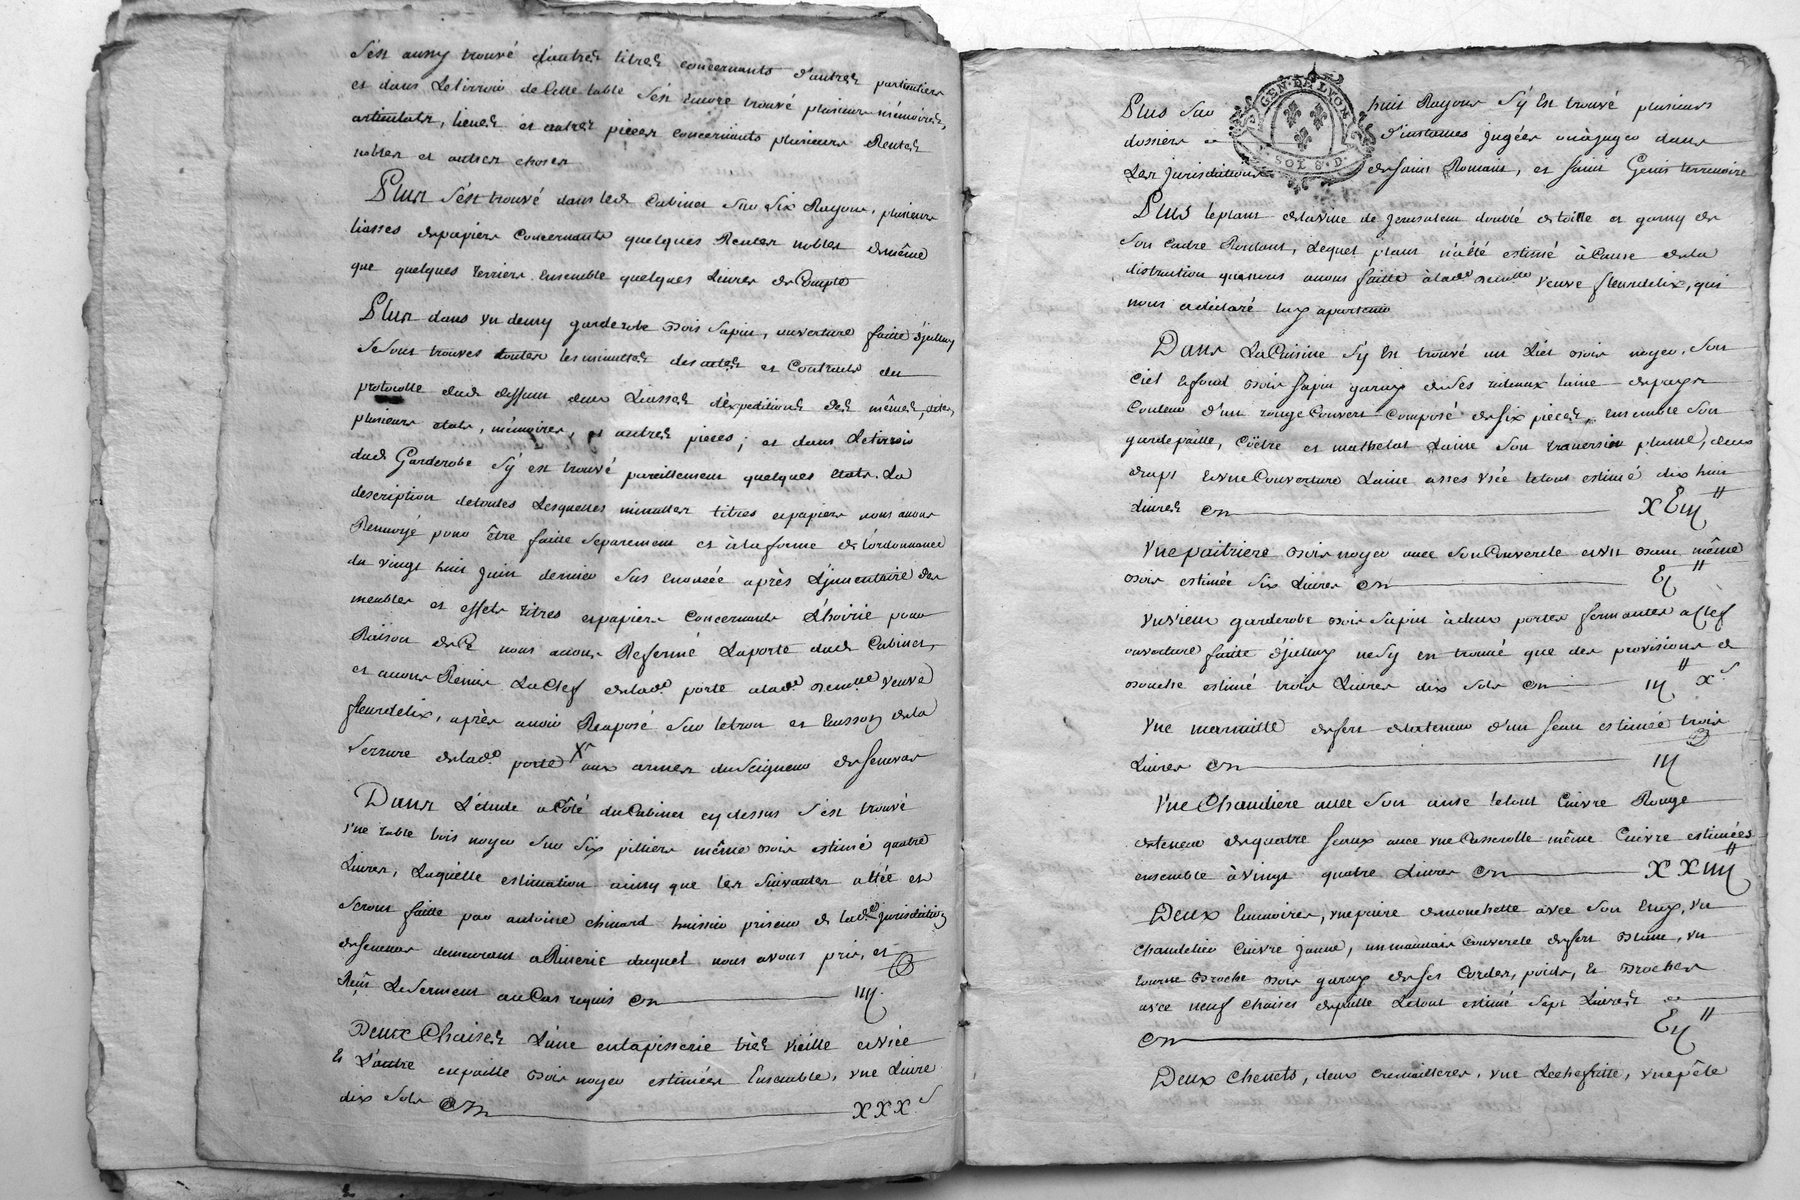 S'est aussy trouvé d'autres titres concernants d'autres particuliers
et dans Letirroir de Cette table s'est Encore trouvé plusieurs mémoires,
articulats, lieues et autres pieces concernants plusieurs Rentes
nobles et autres choses
Plus S'est trouvé dans led. Cabinet Sur Six Rayons, plusieurs
liasses depapiers Concernants quelques Rentes nobles demême
que quelques terriers Ensemble quelques Livres de Compte
Plus dans un demy garderobe Bois Sapin, ouverture faitte d'jcelluy
Se Sont trouvés toutes les minuttes des actes et Contracts du
protocolle dud. deffunt deux Liasses d'Expeditions des mêmes, actes,
plusieurs etats, mémoires, et autres pieces; et dans Letirroir
dud. Garderobe S'y est trouvé pareillement quelques Etats. La
description detoutes Lesquelles minuttes titres et papiers nous avons
Renvoyé pour être faitte Separement et à la forme de L'ordonnance
du vingt huit Juin dernier Sus Enoncée après L'jnventaire des
meubles et effets titres et papiers Concernants L'hoirie pour
Raison de Ce nous avons Refermé Laporte dud. Cabinet,
et avons Remis La Clef de lad.e porte a lad.e Dem.lle veuve
fleurdelix, après avoir Reaposé Sur letrou et Eusson de la
Serrure de lad.e porte X aux armes du Seigneur de Senevas
Dans L'étude a Côté du Cabinet cy dessus S'est trouvé
vne table bois noyer Sur Six pilliers même Bois estimé quatre
Livres, Laquelle estimation ainsy que les Suivantes a été et
Seront faitte par antoine chinard huissier priseur de lad.e jurisdiction
de Senevas demeurant a Riverie duquel nous avons pris, et
Reçu Le Serment au Cas requis Cy IIII.
Deux Chaises L'une entapisserie très vieille et vsée
Et L'autre en paille Bois noyer estimées Ensemble, vne Livre
dix Sols Cy XXX s
GEN. DE LYON
SOL 8. D.
Plus Sur huit Rayons S'y Est trouvé plusieurs
dossiers d'instances jugées ou à juger dans
Les Jurisdictions de Saint Romain, et Saint Genis terrenoire
Plus leplant de la ville de Jerusalem doublé de toille et garny de
Son Cadre Roulant, Lequel plant n'a été estimé à Cause de la
distraction que nous avons faitte à lad.e Dem.lle veuve fleurdelix, qui
nous a déclaré luy apartenir
Dans La Cuisine S'y Est trouvé un Lict Bois noyer, Son
Ciel Le fond Bois Sapin garny de Ses rideaux laine du pays
Couleur d'un rouge Couvert Composé de Six pieces, Ensemble Son
gardepaille, Coëtre et mathelat Laine Son traversin plume, deux
draps et vne Couverture Laine assés vsée letout estimé dix huit
Livres Cy XVIII ll
Vne paitriere Bois noyer avec Son Couvercle et vn Banc même
Bois estimée Six Livres Cy VI ll
Vn vieux garderobe Bois Sapin à deux portes fermantes a Clef
ouverture faitte d'jcelluy ne S'y en trouvé que des provisions de
Bouche estimé trois Livres dix Sols Cy III ll X s
Vne marmitte de fert de la teneur d'un Seau estimée trois
Livres Cy III
Vne Chaudiere avec Son anse letout Cuivre Rouge
de teneur de quatre Seaux avec vne Casserolle même Cuivre estimées
ensemble à vingt quatre Livres Cy XXIIII ll
Deux Lumoires, vne paire de mouchette avec Son Etuy, vn
Chandelier Cuivre jaune, un mauvais Couvercle de fert Blanc, vn
tourne Broche Bois garny de Ses Cordes, poids, Et Broches
avec neuf Chaises de paille Letout estimé Sept Livres
Cy VII ll
Deux Chenets, deux Cremailleres, vne Lechefritte, vne pêle